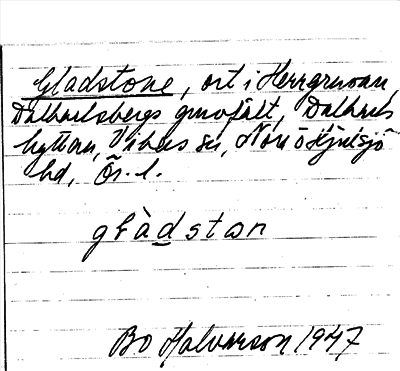 Gladstone, ort i Herrgruvan,
Dalkarlsbergs gruvfält, Dalkarls
hyttan, Vikers sn, Nora o Hjulsjö
bd, Ör. l.
glàdstɷn
Bo Halvarson 1947